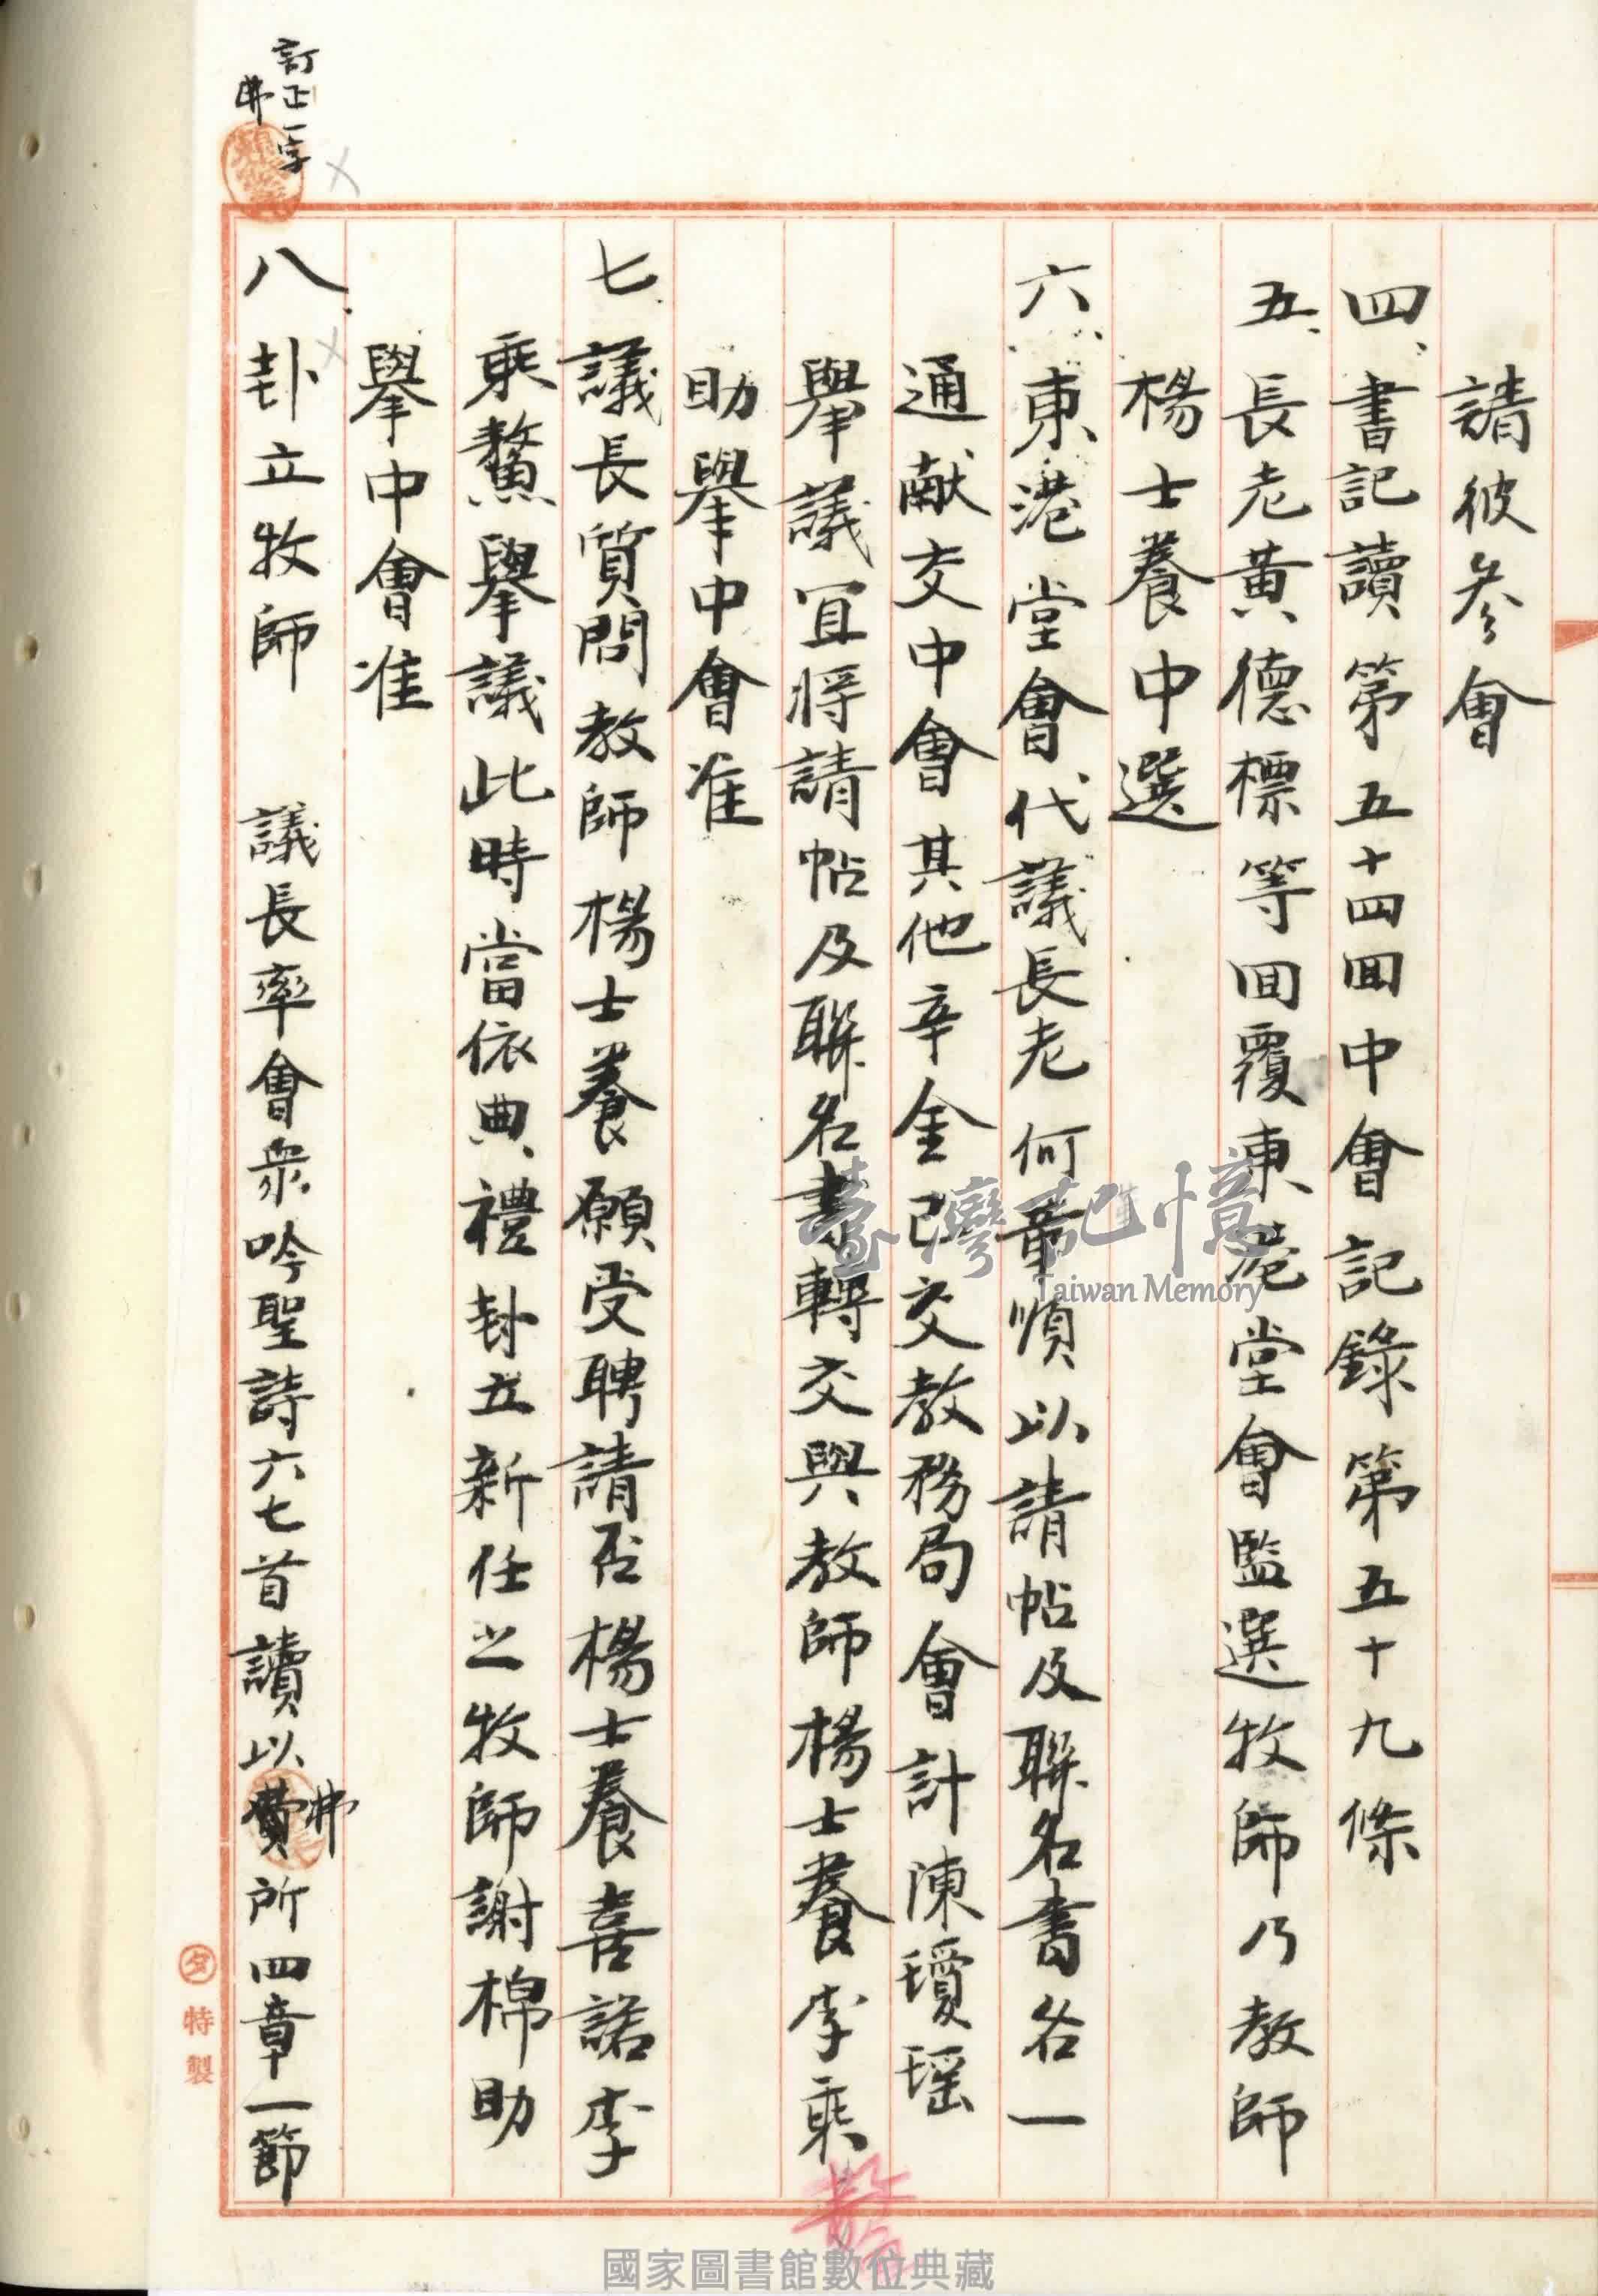 請彼參會
四、書記讀第五十四回中會記錄第五十九條
五、長老黃德標等回覆東港堂會監選牧師乃教師
楊士養中選
六、東港堂會代議長老何章順以請帖及聯名書各一
通献交中會其他辛金已交教務局會計陳瓊瑶
舉議宜將請帖及聯名書轉交與教師楊士養李乘
鰲
助舉中會准
七、議長質問教師楊士養願受聘請否楊士養喜諾李
乘鰲舉議此時當依典禮封立新任之牧師謝棉助
舉中會准
八、封立牧師 議長率會衆吟聖詩六七首讀以弗所四章一節
訂正一字
弗
夕特製
臺灣記憶
Taiwan Memory
國家圖書館數位典藏